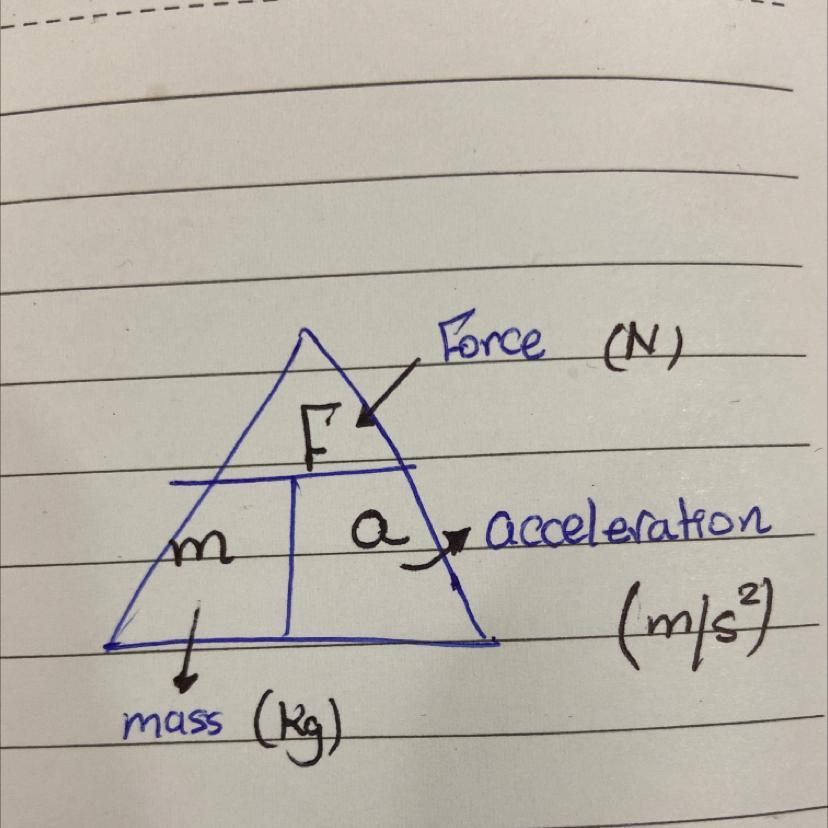 Force (N)
F
m a acceleration
(m/s²)
mass (Kg)